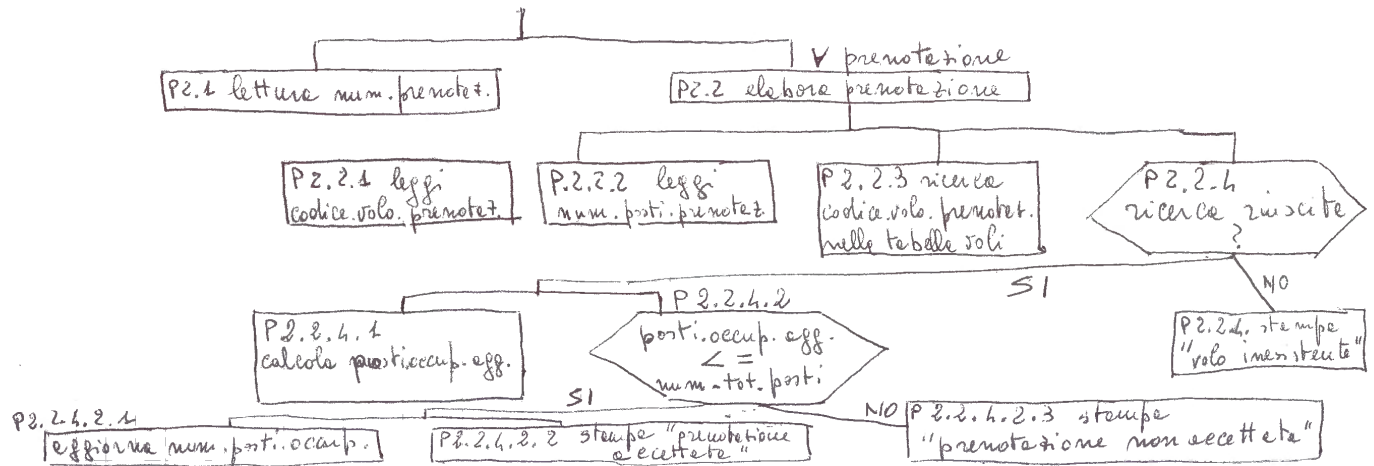 ∀ prenotazione
P2.1 lettura num.prenotaz.
P2.2 elabora prenotazione
P2.2.1 leggi
codice.volo.prenotaz.
P.2.2.2 leggi
num.posti.prenotaz.
P2.2.3 ricerca
codice.volo.prenotaz.
nella tabella voli
P2.2.4
ricerca riuscita
?
SI
NO
P2.2.4.1
calcola posti.occup.agg.
P2.2.4.2
posti.occup.agg.
<=
num.tot.posti
P2.2.4. stampa
"volo inesistente"
SI
NO
P2.2.4.2.1
aggiorna num.posti.occup.
P2.2.4.2.2 stampa "prenotazione
accettata"
P2.2.4.2.3 stampa
"prenotazione non accettata"